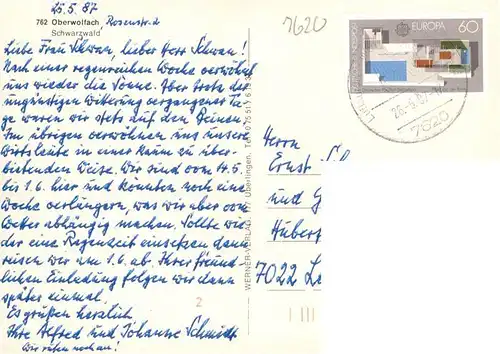 25.5.87
762 Oberwolfach, Rosenstr. 2
Schwarzwald
Liebe Frau Schwan, lieber Herr Schwan!
Nach einer regenreichen Woche verwöhnt
uns wieder die Sonne. Aber trotz der
ungünstigen Witterung vergangener Tage
waren wir stets auf den Beinen.
Im übrigen verwöhnen uns unsere
Wirtsleute in einer kaum zu über-
bietenden Weise. Wir sind vom 14.5.
bis 1.6. hier und könnten noch eine
Woche verlängern, was wir aber vom
Wetter abhängig machen. Sollte wie-
der eine Regenzeit einsetzen dann
reisen wir am 1.6. ab. Ihrer freund-
lichen Einladung folgen wir dann
später einmal.
Es grüßen herzlich
Ihre Alfred und Johanne Schmidt
Wir rufen noch an!
WERNER-VERLAG, 777 Überlingen, Tel.
2
7620
DEUTSCHE BUNDESPOST
EUROPA
60
7620
Herrn
Ernst
und
7022